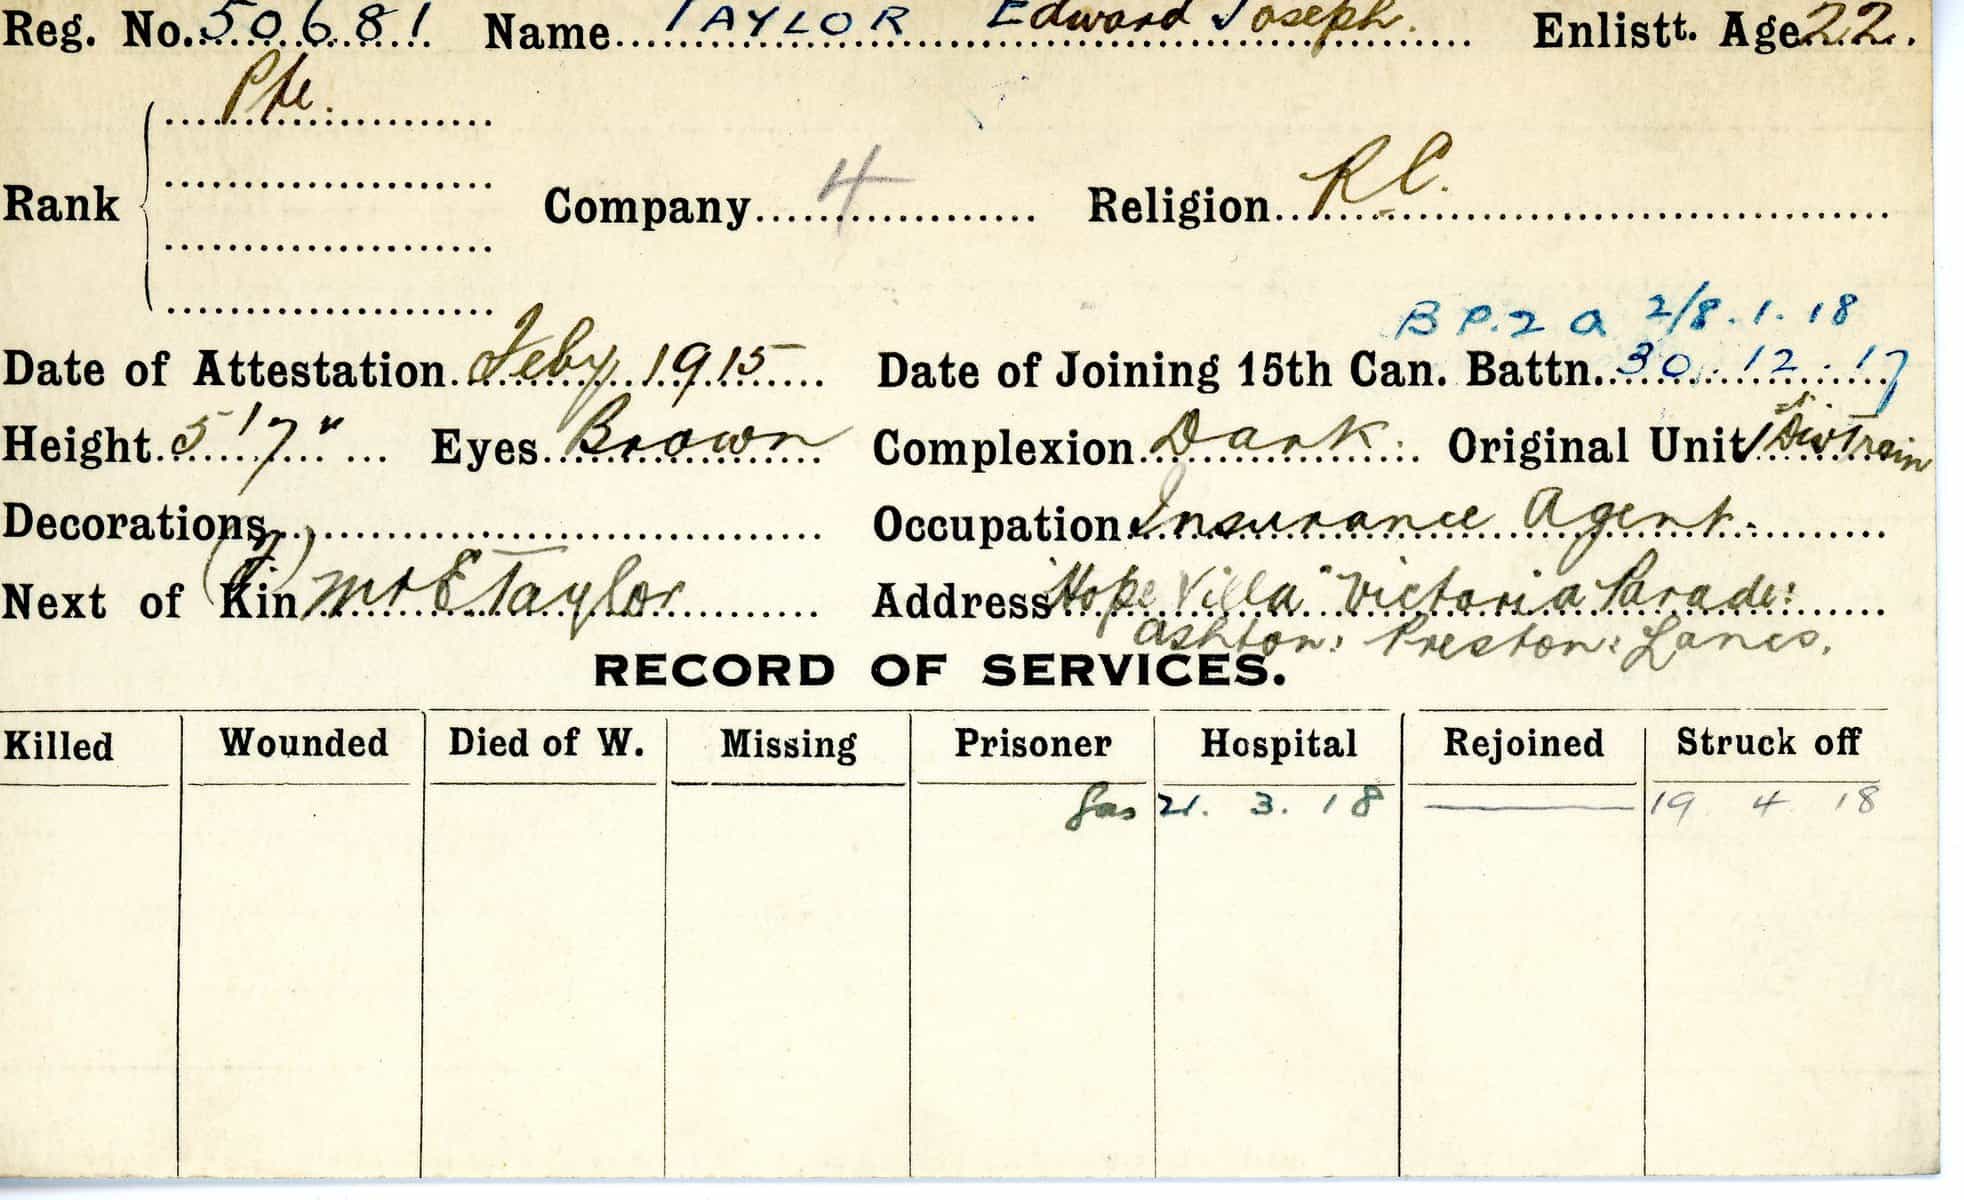 Reg. No. 50681 Name TAYLOR Edward Joseph. Enlistt. Age 22.
Pte.
Rank Company 4 Religion R.C.
B P.2 a 2/8.1.18
Date of Attestation Feby 1915 Date of Joining 15th Can. Battn. 30.12.17
Height 5'7" Eyes Brown Complexion Dark. Original Unit 1st Div Train
Decorations Occupation Insurance Agent.
Next of Kin (F) Mr E Taylor Address "Hope Villa" Victoria Parade:
Ashton: Preston: Lancs.
RECORD OF SERVICES.
Killed Wounded Died of W. Missing Prisoner Hospital Rejoined Struck off
Gas 21. 3. 18 — 19 4 18